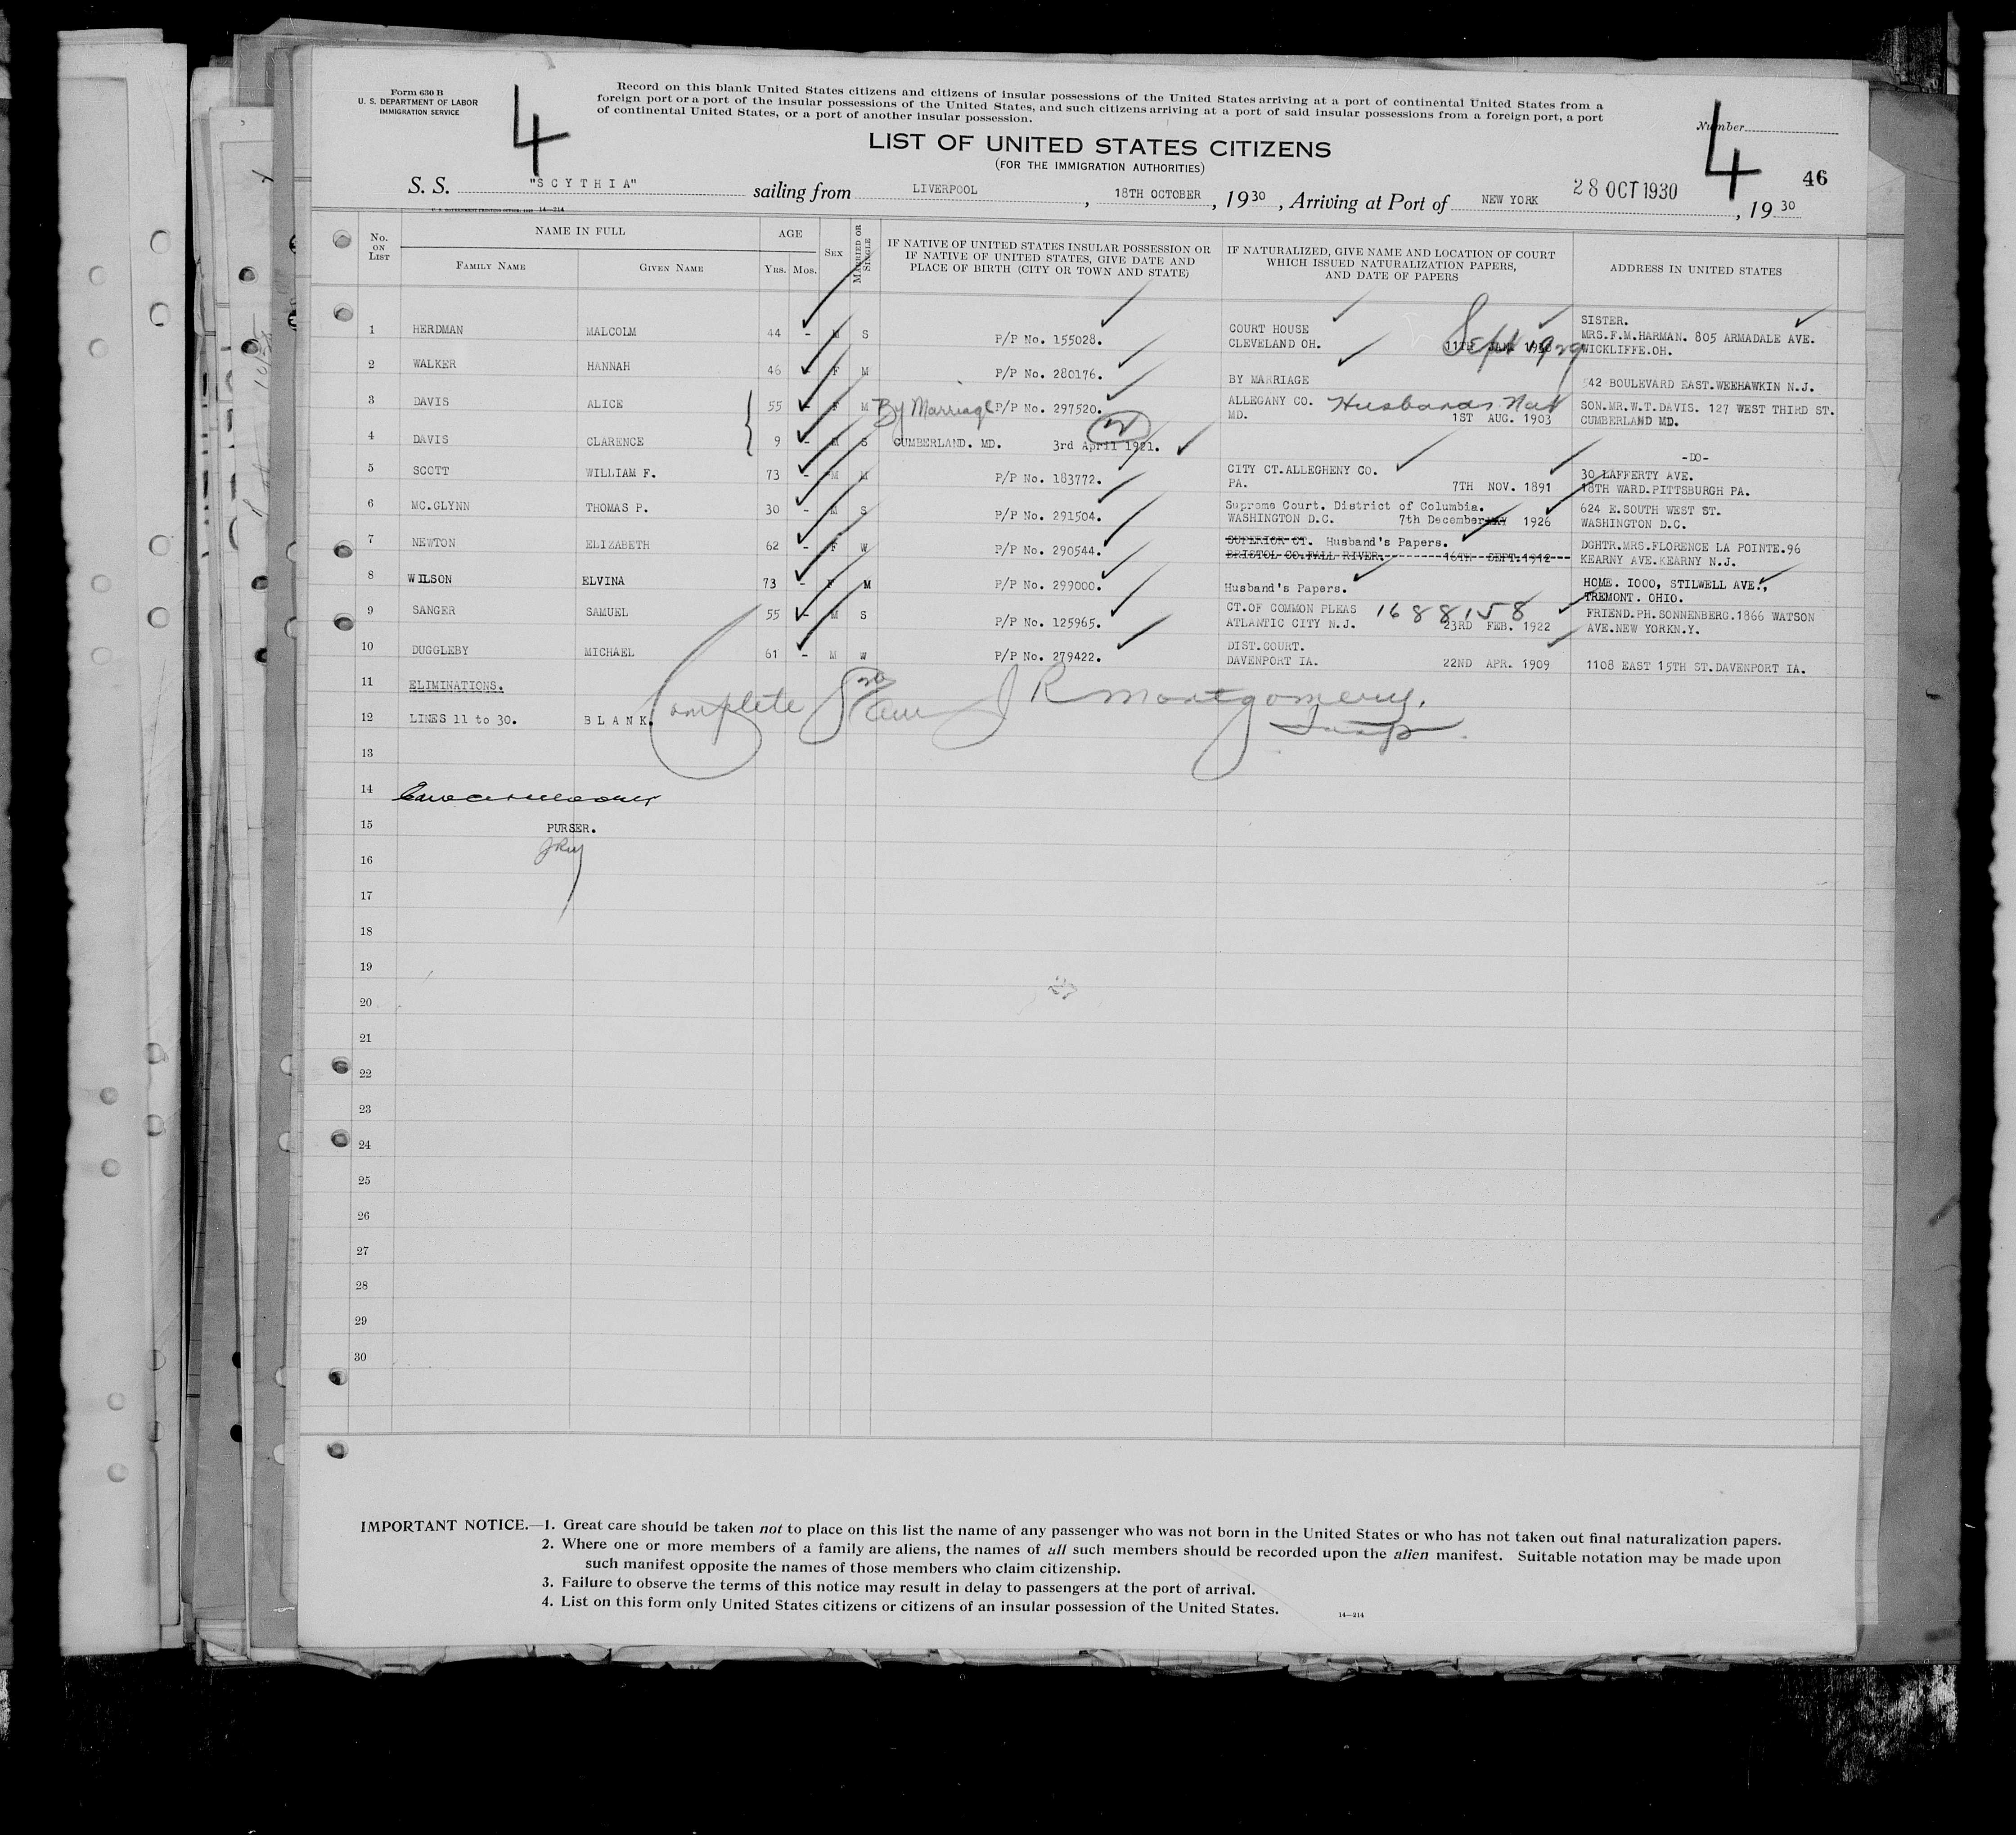 Form 630 B
U. S. DEPARTMENT OF LABOR
IMMIGRATION SERVICE
4
Record on this blank United States citizens and citizens of insular possessions of the United States arriving at a port of continental United States from a
foreign port or a port of the insular possessions of the United States, and such citizens arriving at a port of said insular possessions from a foreign port, a port
of continental United States, or a port of another insular possession.
Number
4
46
LIST OF UNITED STATES CITIZENS
(FOR THE IMMIGRATION AUTHORITIES)
S. S. "SCYTHIA" sailing from LIVERPOOL, 18TH OCTOBER, 1930, Arriving at Port of NEW YORK 28 OCT 1930, 1930
14—214
No. ON LIST
NAME IN FULL
FAMILY NAME GIVEN NAME
AGE
YRS. MOS.
SEX
MARRIED OR SINGLE
IF NATIVE OF UNITED STATES INSULAR POSSESSION OR
IF NATIVE OF UNITED STATES, GIVE DATE AND
PLACE OF BIRTH (CITY OR TOWN AND STATE)
IF NATURALIZED, GIVE NAME AND LOCATION OF COURT
WHICH ISSUED NATURALIZATION PAPERS,
AND DATE OF PAPERS
ADDRESS IN UNITED STATES
1 HERDMAN MALCOLM 44 - M S P/P No. 155028. COURT HOUSE
CLEVELAND OH. 11TH Sept 1929
SISTER.
MRS.F.M.HARMAN. 805 ARMADALE AVE.
WICKLIFFE.OH.
2 WALKER HANNAH 46 F M P/P No. 280176. BY MARRIAGE 42 BOULEVARD EAST.WEEHAWKIN N.J.
3 DAVIS ALICE 55 - F M By Marriage P/P No. 297520. ALLEGANY CO. Husbands Nat
MD. 1ST AUG. 1903
SON.MR.W.T.DAVIS. 127 WEST THIRD ST.
CUMBERLAND MD.
4 DAVIS CLARENCE 9 - M S CUMBERLAND. MD. 3rd April 1921.
-DO-
5 SCOTT WILLIAM F. 73 - M M P/P No. 183772. CITY CT.ALLEGHENY CO.
PA. 7TH NOV. 1891
30 LAFFERTY AVE.
18TH WARD.PITTSBURGH PA.
6 MC.GLYNN THOMAS P. 30 - M S P/P No. 291504. Supreme Court. District of Columbia.
WASHINGTON D.C. 7th December 1926
624 E.SOUTH WEST ST.
WASHINGTON D.C.
7 NEWTON ELIZABETH 62 - F W P/P No. 290544. SUPERIOR CT. Husband's Papers.
BRISTOL CO.FALL RIVER. 16TH SEPT.1912
DGHTR.MRS.FLORENCE LA POINTE.96
KEARNY AVE.KEARNY N.J.
8 WILSON ELVINA 73 - F M P/P No. 299000. Husband's Papers.
HOME. I000, STILWELL AVE.,
TREMONT. OHIO.
9 SANGER SAMUEL 55 - M S P/P No. 125965. CT.OF COMMON PLEAS 1688158
ATLANTIC CITY N.J. 23RD FEB. 1922
FRIEND.PH.SONNENBERG.1866 WATSON
AVE.NEW YORKN.Y.
10 DUGGLEBY MICHAEL 61 - M W P/P No. 279422. DIST.COURT.
DAVENPORT IA. 22ND APR. 1909 1108 EAST 15TH ST.DAVENPORT IA.
11 ELIMINATIONS.
12 LINES 11 to 30. BLANK.
Complete J R Montgomery.
Insp.
13
14
15 PURSER.
JRM
16
17
18
19
20
21
22
23
24
25
26
27
28
29
30
IMPORTANT NOTICE.—1. Great care should be taken not to place on this list the name of any passenger who was not born in the United States or who has not taken out final naturalization papers.
2. Where one or more members of a family are aliens, the names of all such members should be recorded upon the alien manifest. Suitable notation may be made upon
such manifest opposite the names of those members who claim citizenship.
3. Failure to observe the terms of this notice may result in delay to passengers at the port of arrival.
4. List on this form only United States citizens or citizens of an insular possession of the United States.
14—214